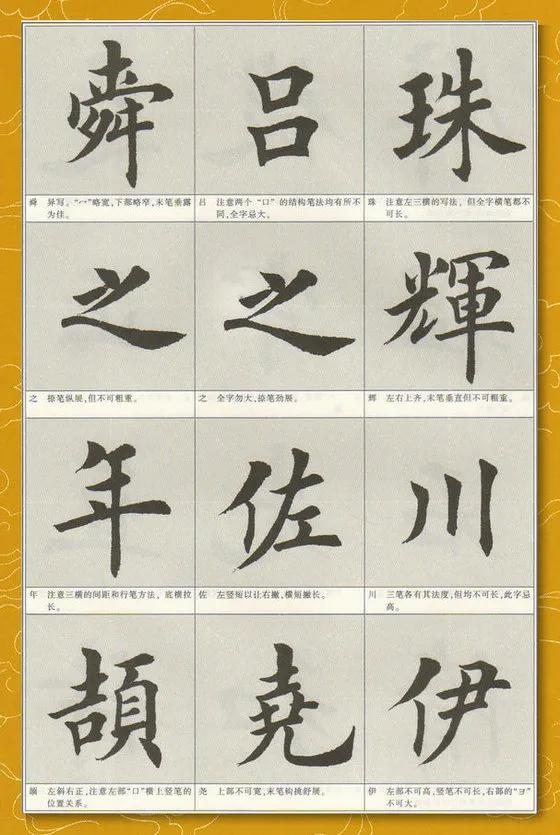 珠
珠 注意左三横的写法,但全字横笔都不
可长。
輝
辉 左右上齐,末笔垂直但不可粗重。
川
川 三笔各有其法度,但均不可长,此字忌
高。
伊
伊 左部不可高,竖笔不可长,右部的“ヨ”
不可大。
吕
吕 注意两个“口”的结构笔法均有所不
同,全字忌大。
之
之 全字勿大,捺笔劲展。
佐
佐 左竖短以让右撇,横短撇长。
堯
尧 上部不可宽,末笔钩挑舒展。
舜
舜 异写。“冖”略宽,下部略窄,末笔垂露
为佳。
之
之 捺笔纵展,但不可粗重。
年
年 注意三横的间距和行笔方法,底横拉
长。
頡
颉 左斜右正,注意左部“口”横上竖笔的
位置关系。